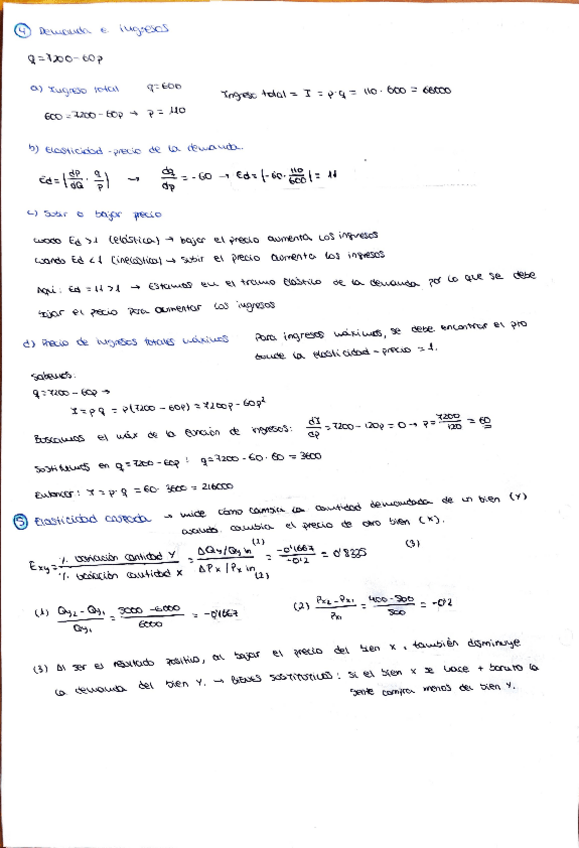 4 Demanda e ingresos
q = 7200 - 60p
a) Ingreso total q = 600 Ingreso total = I = p · q = 110 · 600 = 66000
600 = 7200 - 60p → p = 110
b) Elasticidad-precio de la demanda.
Ed = |dp/dq · q/p| → dq/dp = -60 → Ed = |-60 · 110/600| = 11
c) Subir o bajar precio
cuando Ed > 1 (elástica) → bajar el precio aumenta los ingresos
cuando Ed < 1 (inelástica) → subir el precio aumenta los ingresos
Aquí: Ed = 11 > 1 → Estamos en el tramo elástico de la demanda por lo que se debe
bajar el precio para aumentar los ingresos
d) Precio de ingresos totales máximos Para ingresos máximos, se debe encontrar el pto
donde la elasticidad-precio = 1.
Sabemos:
q = 7200 - 60p →
I = p q = p(7200 - 60p) = 7200p - 60p²
Buscamos el máx de la función de ingresos: dI/dp = 7200 - 120p = 0 → p = 7200/120 = 60
Sustituimos en q = 7200 - 60p : q = 7200 - 60 · 60 = 3600
Entonces: I = p · q = 60 · 3600 = 216000
5 Elasticidad cruzada → mide cómo cambia la cantidad demandada de un bien (Y)
cuando cambia el precio de otro bien (X).
Exy = % variación cantidad Y / % variación cantidad X = ΔQy/Qy in (1) / ΔPx/Px in (2) = -0'1667 / -0'2 = 0'8335 (3)
(1) Qy2 - Qy1 / Qy1 = 5000 - 6000 / 6000 = -0'1667 (2) Px2 - Px1 / Px1 = 400 - 500 / 500 = -0'2
(3) Al ser el resultado positivo, al bajar el precio del bien X, también disminuye
la demanda del bien Y. → BIENES SUSTITUTIVOS: si el bien X se hace + barato la
gente compra menos del bien Y.